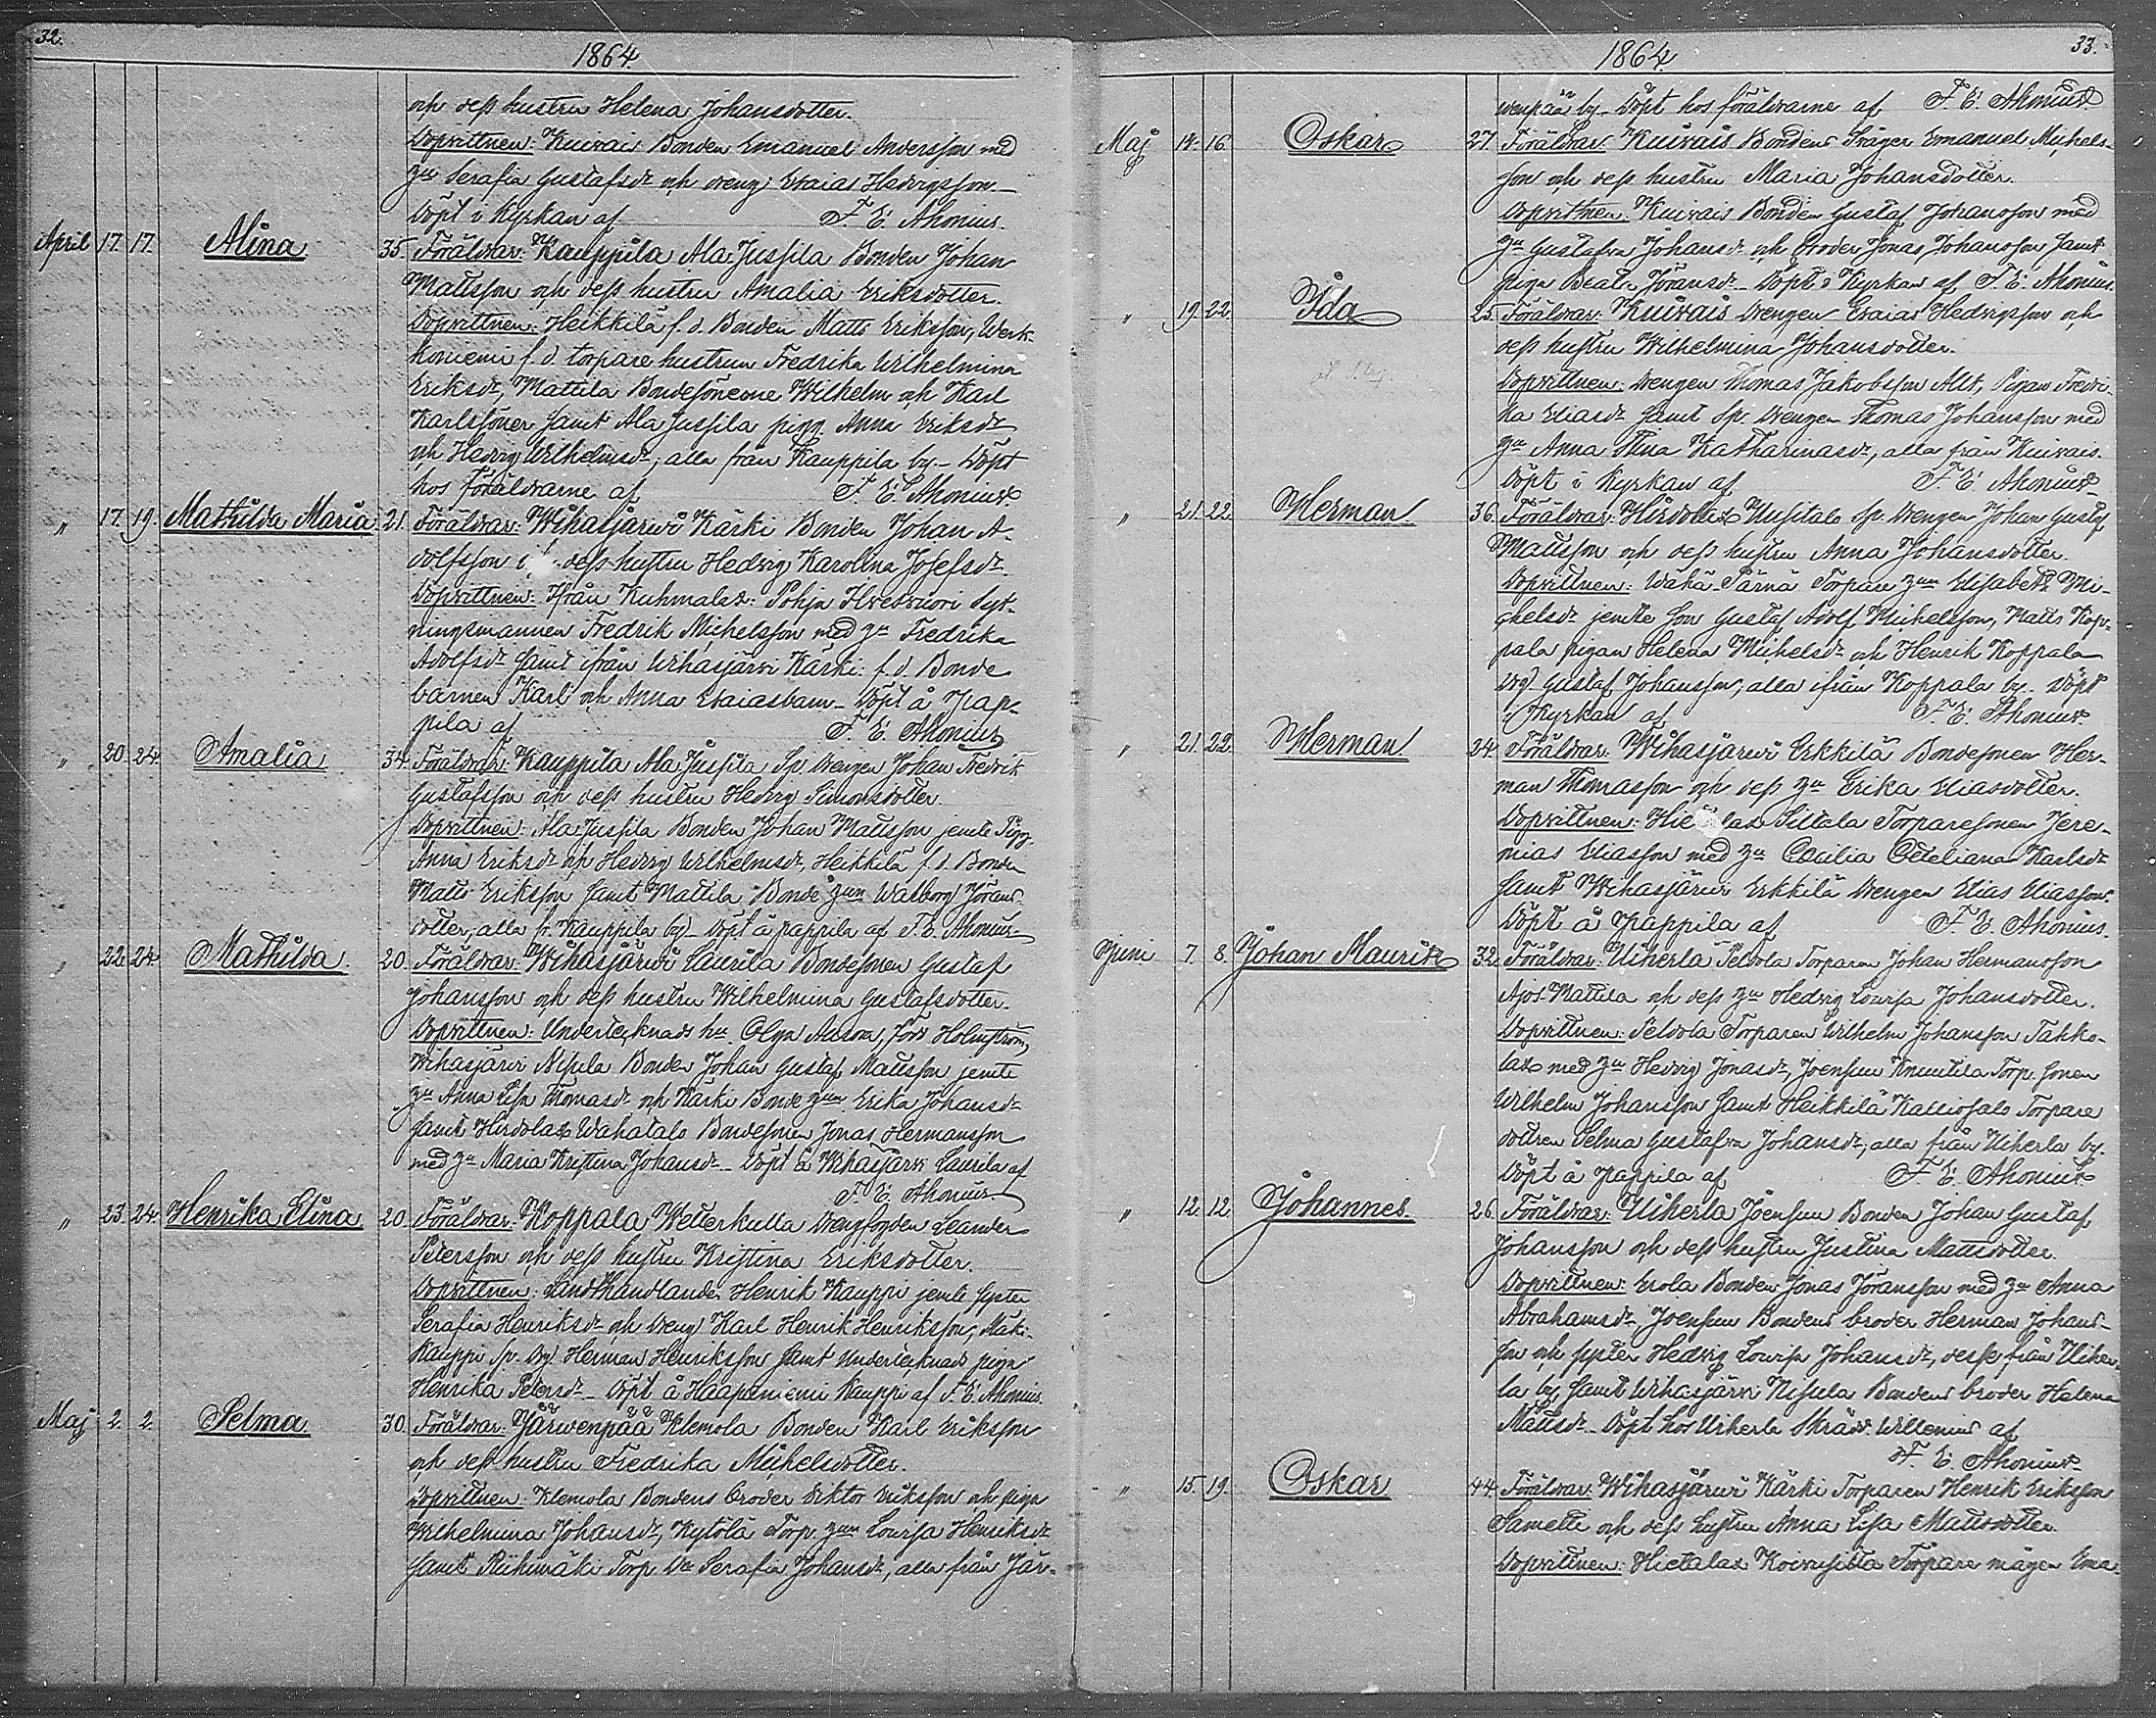 32.
1864.
och dess hustru Helena Johansdotter.
Dopvittnen: Kuivais Bonden Emanuel Andersson med
hu Serafia Gustafsdr och dreng Esaias Hedvigsson.
Döpt i Kyrkan af F. E. Ahonius.
April 17. 17. Alina 35. Föräldrar: Kauppila Ala Jussila Bonden Johan
Mattsson och dess hustru Amalia Eriksdotter.
Dopvittnen: Heikkilä f. d. Bonden Matts Eriksson, Werk-
koniemi f. d. torpare hustrun Fredrika Wilhelmina
Eriksdr, Mattila Bondesönerne Wilhelm och Karl
Karlssöner samt Ala Jussila pigg. Anna Eriksdr
och Hedvig Wilhelmsdr, alla från Kauppila by. Döpt
hos föräldrarne af F. E. Ahonius
" 17. 19. Mathilda Maria 21. Föräldrar: Wihasjärwi Kärki Bonden Johan A-
dolfsson dess hustru Hedvig Karolina Josefsdr.
Dopvittnen: Ifrån Kuhmalax: Pohja Hvesvuori Syt-
ningsmannen Fredrik Michelsson med hu Fredrika
Adolfsdr samt ifrån Wihasjärvi Kärki: f. d. Bonde
barnen Karl och Anna Esaiasbarn. Döpt å Pap-
pila af F. E. Ahonius
" 20. 24. Amalia 34. Föräldrar: Kauppila Ala Jussila Sp. drengen Johan Fredrik
Gustafsson och dess hustru Hedvig Simonsdotter.
Dopvittnen: Ala Jussila Bonden Johan Mattsson jemte Pigg.
Anna Eriksdr och Hedvig Wilhelmsdr, Heikkilä f. d. Bonden
Matts Eriksson samt Mattila Bonde hun Walborg Jörans-
dotter, alla fr. Kauppila by. Döpt å pappila af F. E. Ahonius
" 22. 24. Mathilda 20. Föräldrar: Wihasjärwi Laurila Bondesonen Gustaf
Johansson och dess hustru Wilhelmina Gustafsdotter.
Dopvittnen: Undertecknads hu Olga Aurora, född Holmström,
Wihasjärvi Nisula Bonden Johan Gustaf Mattsson jemte
hu Anna Lisa Thomasdr och Kärki Bonde hun Erika Johansdr
samt Hirvolax Wahatalo Bondesonen Jonas Hermansson
med hu Maria Kristina Johansdr. Döpt å Wihasjärvi Laurila af
F. E. Ahonius.
" 23. 24. Henrika Elina 20. Föräldrar: Koppala Wetterkulla drengfogden Leander
Petersson och dess hustru Kristina Eriksdotter.
Dopvittnen: Landthandlanden Henrik Kauppi jemte syster
Serafia Henriksdr och dreng Karl Henrik Henriksson, Mäki-
Kauppi sp. dg. Herman Henriksson samt Undertecknads piga
Henrika Petersdr. Döpt å Haapaniemi Kauppi af F. E. Ahonius.
Maj 2. 2. Selma 30. Föräldrar: Järwenpää Klemola Bonden Karl Eriksson
och dess hustru Fredrika Michelsdotter.
Dopvittnen: Klemola Bondens broder Viktor Eriksson och piga
Wilhelmina Johansdr, Kytölä Torp. hun Lovisa Henriksdr
samt Riihimäki Torp. dr Serafia Johansdr, alla från Jär-
33.
1864
venpää by. Döpt hos föräldrarne af F. E. Ahonius
Maj 14. 16. Oskar 27. Föräldrar: Kuivais Bondens Svåger Emanuel Michels-
son och dess hustru Maria Johansdotter.
Dopvittnen: Kuivais Bonden Gustaf Johansson med
hu Gustafva Johansdr och broder Jonas Johansson samt
piga Beata Jöransdr. Döpt i Kyrkan af F. E. Ahonius.
" 19. 22. Ida 25. Föräldrar: Kuivais drengen Esaias Hedvigsson och
dess hustru Wilhelmina Johansdotter.
Dopvittnen: drengen Thomas Jakobsson Alit, Pigan Fredri-
ka Eliasdr samt Sp. drengen Thomas Johansson med
hu Anna Stina Katharinasdr, alla från Kuivais.
Döpt i Kyrkan af F. E. Ahonius
" 21. 22. Herman 36. Föräldrar: Hirvolax Uusitalo Sp. drengen Johan Gustaf
Mattsson och dess hustru Anna Johansdotter.
Dopvittnen: Wähä-Pärnä Torpare hun Elisabeth Mi-
chelsdr jemte son Gustaf Adolf Michelsson, Matts Kop-
pala pigan Helena Michelsdr och Henrik Koppala
drg. Gustaf Johansson, alla ifrån Koppala by. Döpt
i Kyrkan af F. E. Ahonius
" 21. 22. Herman 24. Föräldrar: Wihasjärwi Erkkilä Bondesonen Her-
man Thomasson och dess hu Erika Eliasdotter.
Dopvittnen: Siltala Torparesonen Jere-
mias Eliasson med hu Cæcilia Ottiliana Karlsdr
samt Wihasjärvi Erkkilä drengen Elias Eliasson.
Döpt å Pappila af F. E. Ahonius.
Juni 7. 8. Johan Maurits 32. Föräldrar: Uiherla Peldola Torparen Johan Hermansson
Ajos-Mattila och dess hu Hedvig Lovisa Johansdotter.
Dopvittnen: Peldola Torparen Wilhelm Johansson Takko-
lax med hu Hedvig Jonasdr, Joensuu Knuutila Torp. sonen
Wilhelm Johansson samt Heikkilä Kalliosalo Torpare
dottren Selma Gustafva Johansdr, alla från Uiherla by.
Döpt å Pappila af F. E. Ahonius
" 12. 12. Johannes. 26. Föräldrar: Uiherla Joensuu Bonden Johan Gustaf
Johansson och dess hustru Justina Mattsdotter.
Dopvittnen: Erola Bonden Jonas Jöransson med hu Anna
Abrahamsdr, Joensuu Bondens broder Herman Johans-
son och syster Hedvig Lovisa Johansdr, desse från Uiher-
la by, samt Wihasjärvi Nisula Bondens broder Helena
Mattsdr. Döpt hos Uiherla Skrädd. Willenius af
F. E. Ahonius
" 15. 19. Oskar 44. Föräldrar: Wihasjärwi Kärki Torparen Henrik Eriksson
Samette och dess hustru Anna Lisa Mattsdotter.
Dopvittnen: Hietalax Koivusilta Torpare mågen Ema-